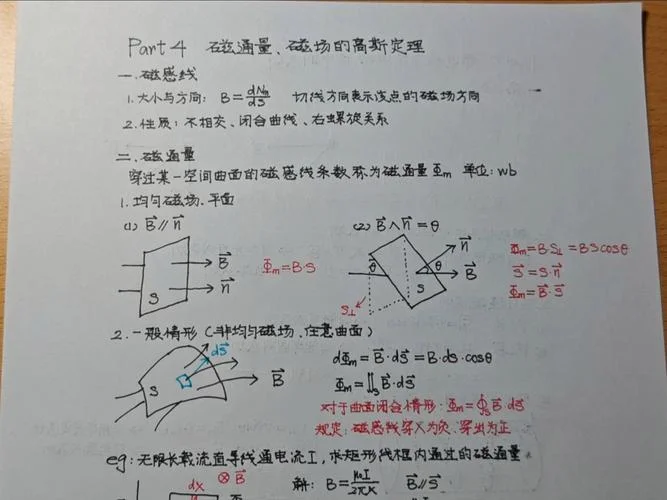 Part 4 磁通量、磁场的高斯定理
一、磁感线
1.大小与方向: B=dNm/dS 切线方向表示该点的磁场方向
2.性质:不相交、闭合曲线、右螺旋关系
二、磁通量
穿过某一空间曲面的磁感线条数称为磁通量Φm 单位:wb
1.均匀磁场、平面
(1) B⃗∥n⃗
(2) B⃗∧n⃗=θ
B⃗
n⃗
S
Φm=B·S
n⃗
θ
θ
B⃗
S
S⊥
Φm=B·S⊥=BScosθ
S⃗=S·n⃗
Φm=B⃗·S⃗
2.一般情形(非均匀磁场、任意曲面)
dS⃗
S
B⃗
dΦm=B⃗·dS⃗=B·ds·cosθ
Φm=∬s B⃗·dS⃗
对于曲面闭合情形:Φm=∮s B⃗·dS⃗
规定:磁感线穿入为负,穿出为正
eg:无限长载流直导线通电流I,求矩形线框内通过的磁通量
dx
⊗B⃗
解: B=μ₀I/2πx B⃗∥S⃗